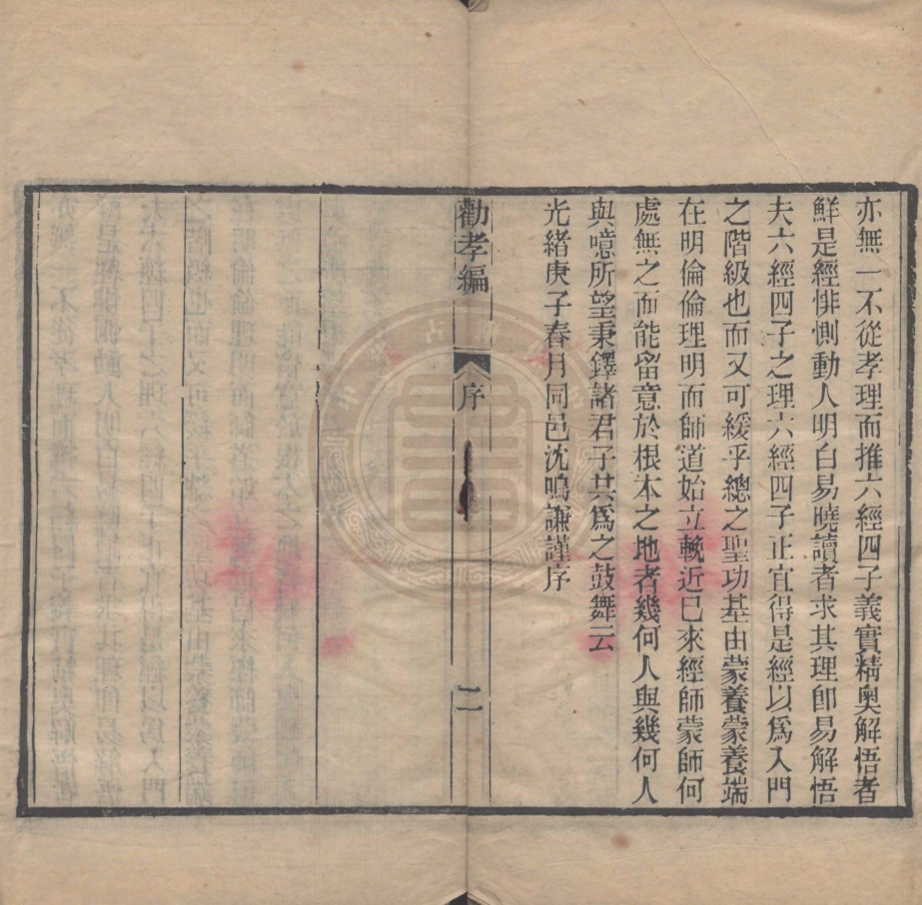 亦無一不從孝理而推六經四子義實精奧解悟者
鮮是經悱惻動人明白易曉讀者求其理卽易解悟
夫六經四子之理六經四子正宜得是經以爲入門
之階級也而又可緩乎總之聖功基由蒙養蒙養端
在明倫倫理明而師道始立輓近已來經師蒙師何
處無之而能留意於根本之地者幾何人與幾何人
與噫所望秉鐸諸君子其爲之鼓舞云
光緒庚子春月同邑沈鳴謙謹序
勸孝編
序
二